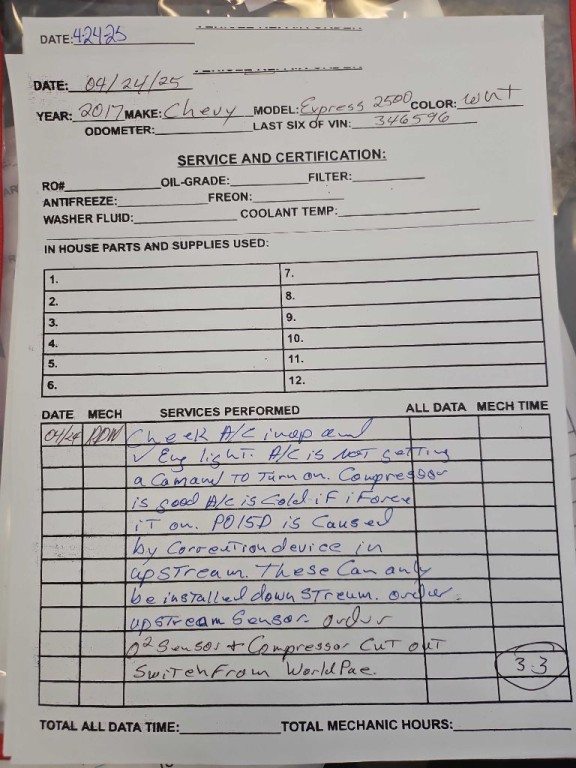 DATE: 42425
DATE: 04/24/25
YEAR: 2017 MAKE: Chevy MODEL: Express 2500 COLOR: WHT
ODOMETER: LAST SIX OF VIN: 346596
SERVICE AND CERTIFICATION:
RO# OIL-GRADE: FILTER:
ANTIFREEZE: FREON:
WASHER FLUID: COOLANT TEMP:
IN HOUSE PARTS AND SUPPLIES USED:
1. 7.
2. 8.
3. 9.
4. 10.
5. 11.
6. 12.
DATE MECH SERVICES PERFORMED ALL DATA MECH TIME
04/24 Check A/C inop and
✓ Eng light. A/C is NOT getting
a Comand to Turn on. Compressor
is good A/C is Cold if i Force
iT on. P015D is Caused
by Correction device in
upSTream. These Can only
be installed down STreum. order
upstream Sensor order
O2 Sensor + Compressor CuT ouT
Switch From World Pac. 3.3
TOTAL ALL DATA TIME: TOTAL MECHANIC HOURS: